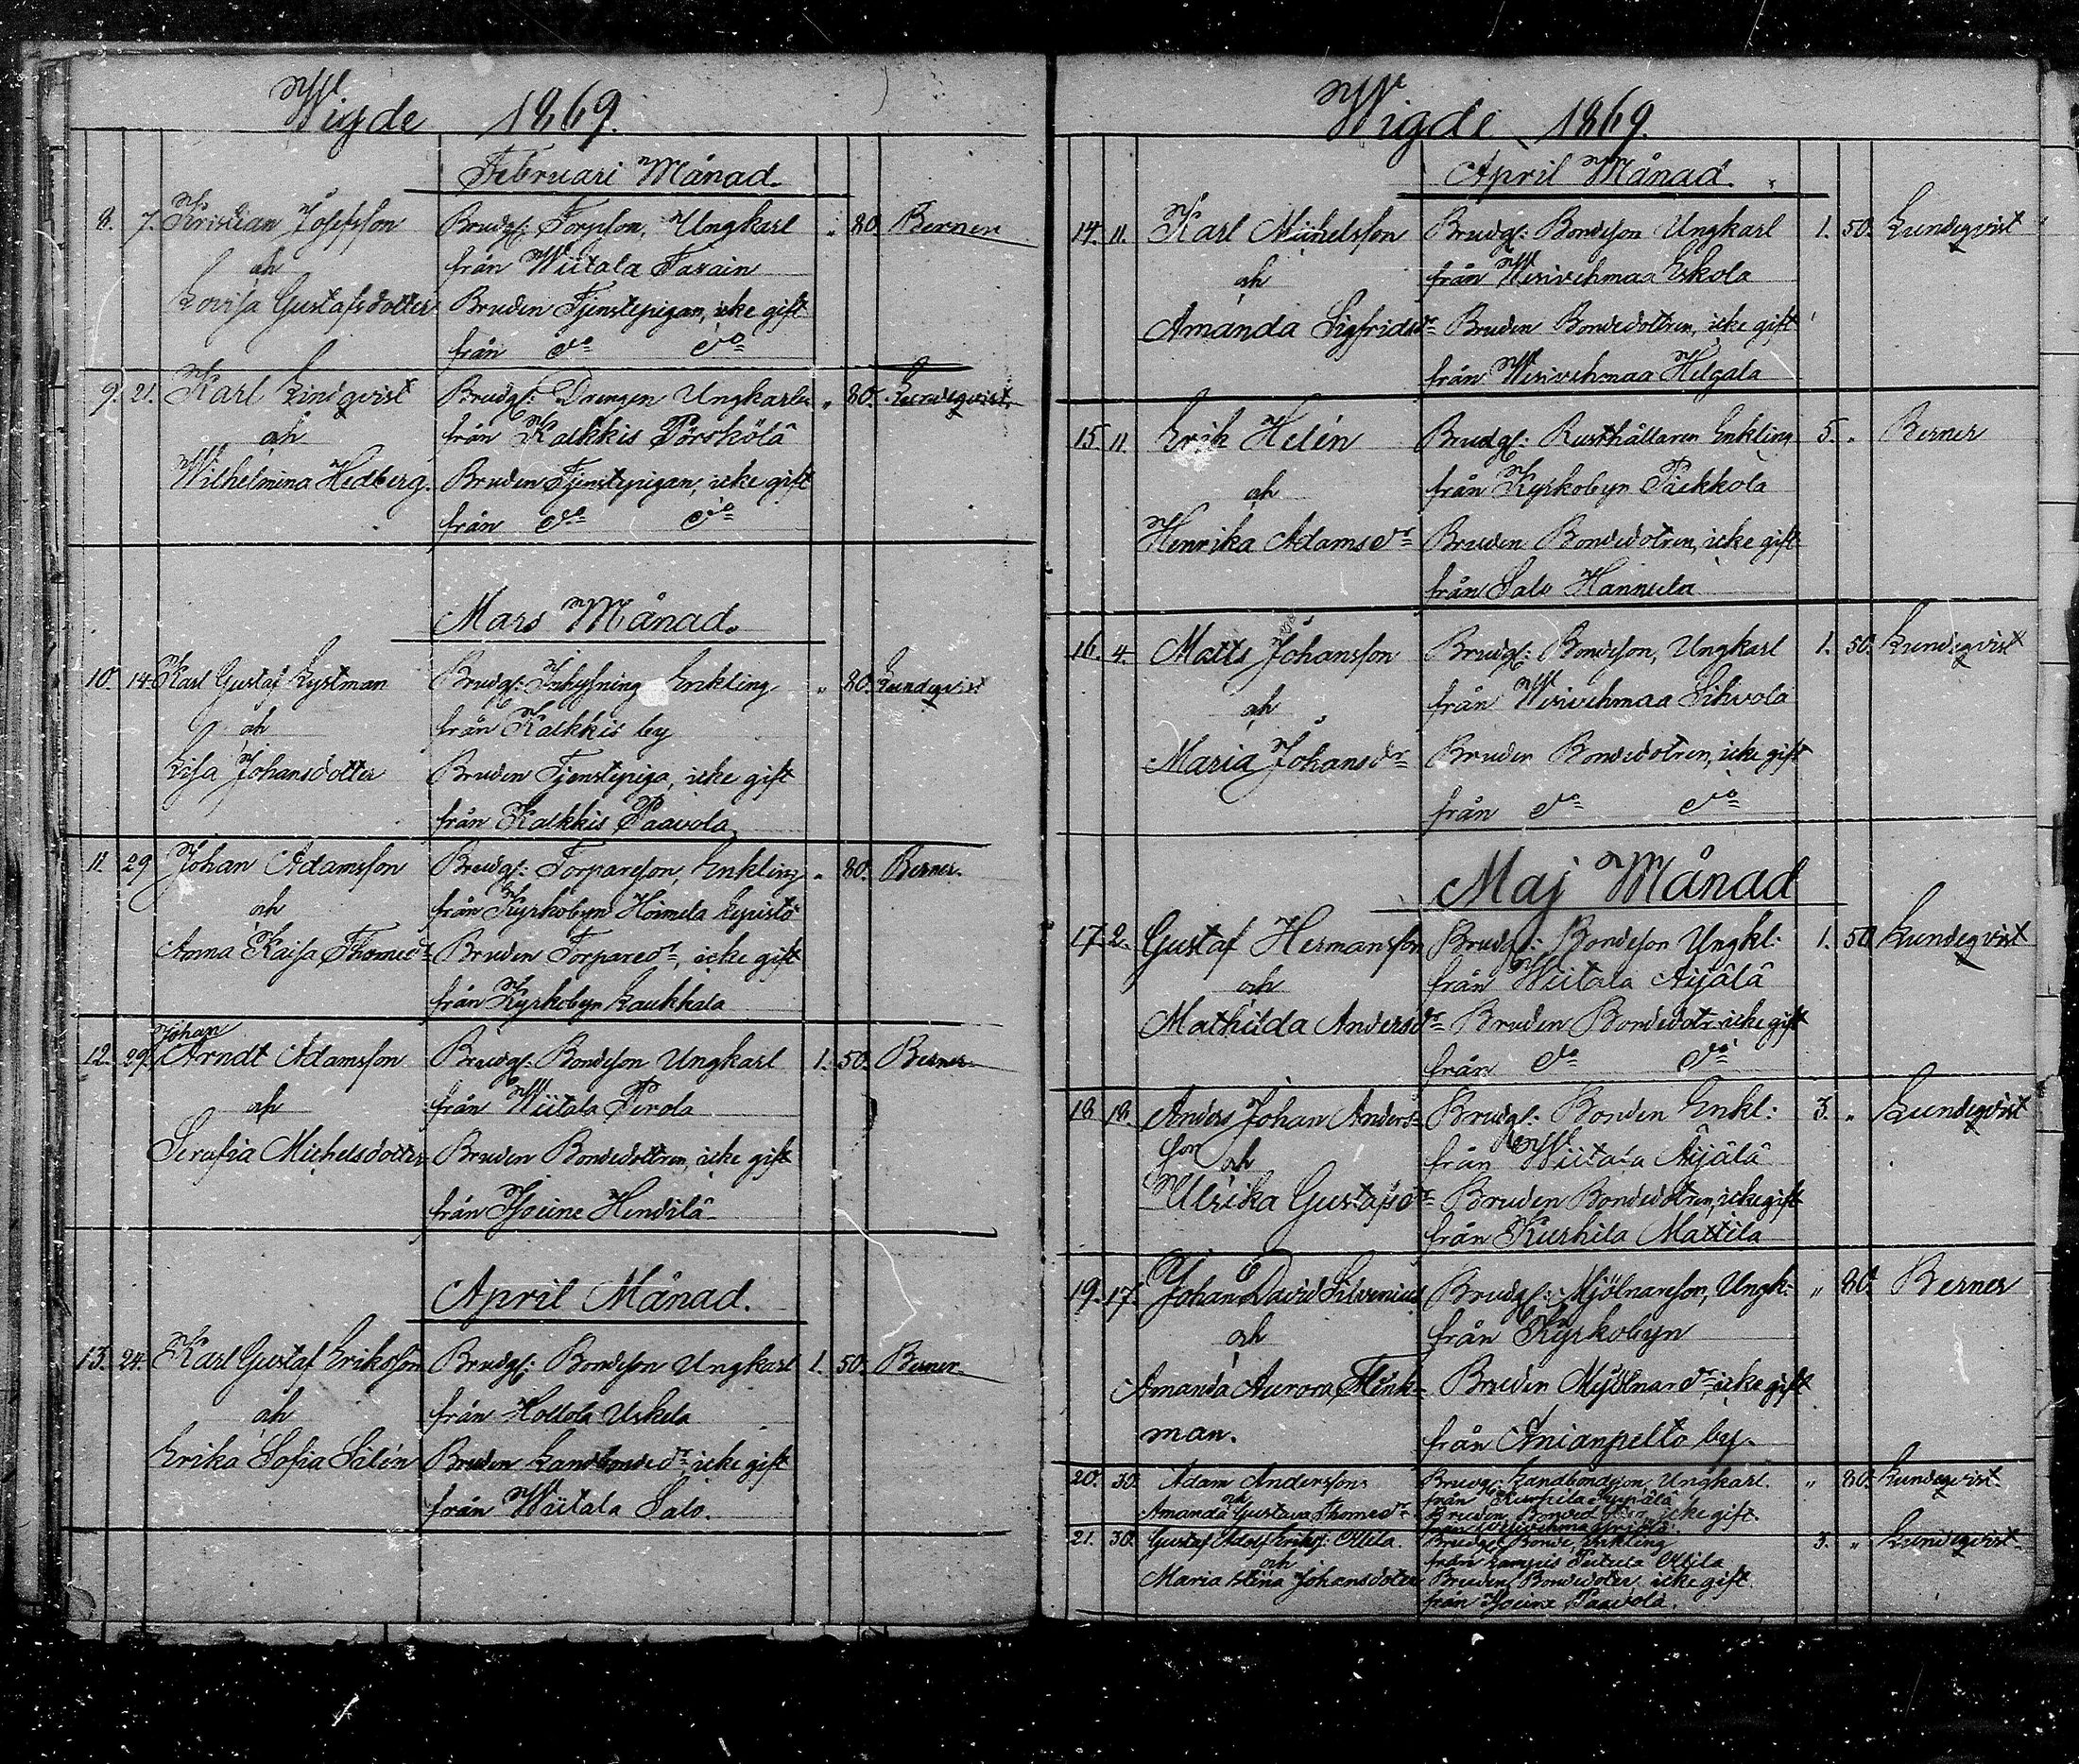 Wigde 1869.
Februari Månad.
8. 7. Kristian Josefsson Brudg: Torpson, Ungkarl " 80. Berner
och från Wiitala Tarain
Lovisa Gustafsdotter Bruden Tjenstepigan, icke gift
från d:o d:o
9. 21. Karl Lindqvist Brudg: Drengen Ungkarln " 80. Lundeqvist
och från Kalkkis Pörskölä
Wilhelmina Hedberg. Bruden Tjenstepigan, icke gift
från d:o d:o
Mars Månad.
10. 14. Karl Gustaf Lystman Brudg: Inhysning Enkling " 80. Lundeqvist
och från Kalkkis by
Lisa Johansdotter Bruden Tjenstepiga, icke gift
från Kalkkis Paavola
11. 29 Johan Adamsson Brudg: Torpareson, Enkling " 80. Berner.
och från Kyrkobyn Hoimela
Anna Kaisa Thomasd:r Bruden Torpared:r, icke gift
från Kyrkobyn Laukkala
Johan
12. 29. Arndt Adamsson Brudg: Bondeson Ungkarl 1. 50. Berner
och från Wiitala Perola
Serafia Michelsdotter Bruden Bondedottren, icke gift
från Hendilä
April Månad.
13. 24. Karl Gustaf Eriksson Brudg: Bondeson Ungkarl 1. 50. Berner
och från Hollola Uskila
Erika Sofia Salén Bruden Landbonded:r, icke gift
från Wiitala Salo.
Wigde 1869.
April Månad.
14. 11. Karl Michelsson Brudg: Bondeson Ungkarl 1. 50. Lundeqvist
och från Wesivehmaa Eskola
Amanda Sigfridsd:r Bruden Bondedottren, icke gift
från Wesivehmaa Helgala
15. 11. Erik Helén Brudg: Rusthållaren Enkling 5. " Berner
och från Kyrkobyn Päkkola
Henrika Adamsd:r Bruden Bondedotren, icke gift
från Salo Hannula
16. 4. Matts Johansson Brudg: Bondeson, Ungkarl 1. 50. Lundeqvist
och från Wesivehmaa Sihvola
Maria Johansd:r Bruden Bondedotren, icke gift
från d:o d:o
Maj Månad
17. 2. Gustaf Hermansson Brudg: Bondeson Ungkl: 1. 50 Lundeqvist
och från Wiitala Äijälä
Mathilda Andersd:r Bruden Bondedotr icke gift
från d:o d:o
18 18. Anders Johan Anders- Brudg: Bonden Enkl: 3. " Lundeqvist
son och från Wiitala Äijälä
Ulrika Gustafsd:r Bruden Bondedotren, icke gift
från Kurhila Mattila
19. 17. Johan David Silvenius Brudg: Mjölnareson, Ungk: " 80. Berner
och från Kyrkobyn
Amanda Aurora Flink- Bruden Mjölnared:r, icke gift
man. från Anianpelto by.
20. 30. Adam Andersson Brudg: Landbondeson, Ungkarl. " 80. Lundeqvist.
och från Kurhila
Amanda Gustava Thomasd:r Bruden icke gift.
från Wesivehmaa
21. 30. Gustaf Adolf Eriks: Ollila. Brudg: Bonde, Enkling 3. " Lundeqvist
och från Ollila
Maria Stina Johansdoter Bruden Bondedoter, icke gift.
från Paavola.